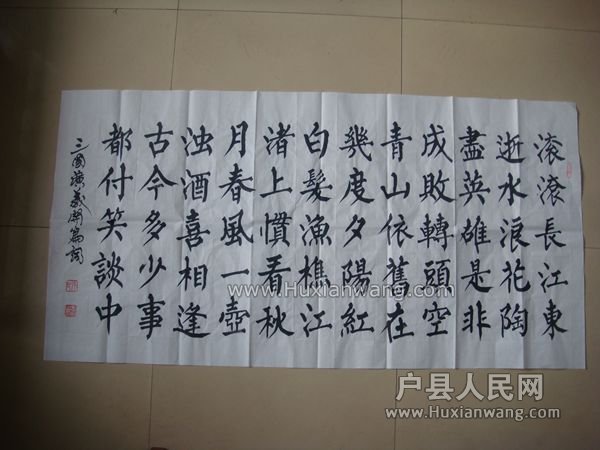 滚滚長江東
逝水浪花陶
盡英雄是非
成敗轉頭空
青山依舊在
幾度夕陽紅
白髮漁樵江
渚上慣看秋
月春風一壺
浊酒喜相逢
古今多少事
都付笑談中
三國演義開篇詞
www.Huxianwang.com
户县人民网
www.Huxianwang.com